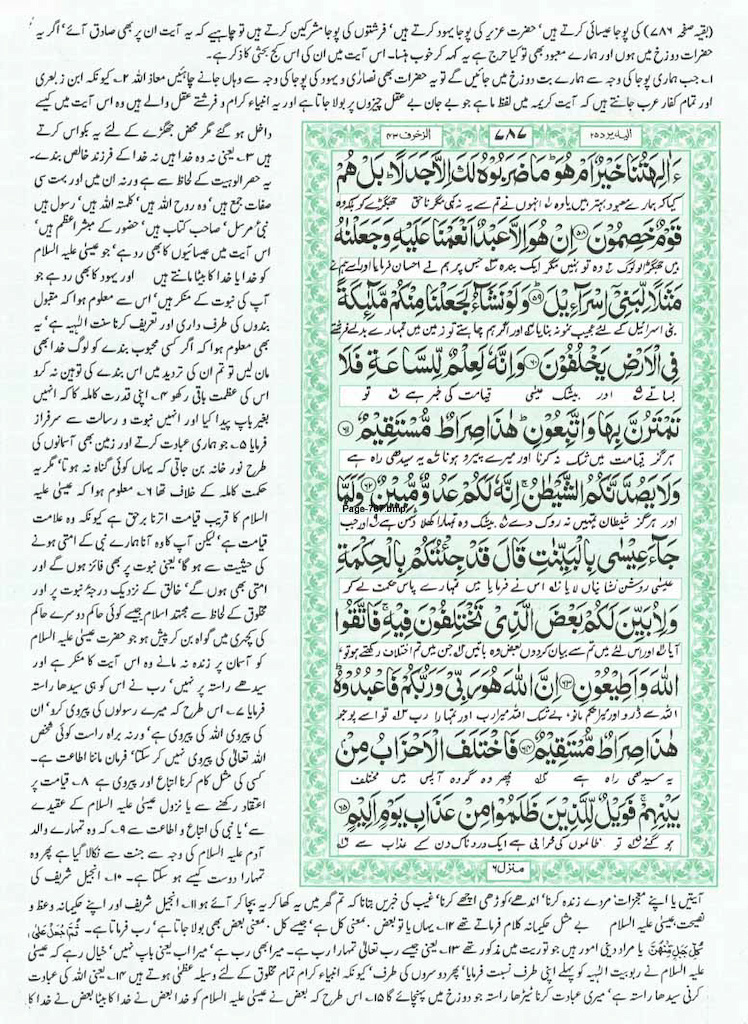 (بقیہ صفحہ ۷۸۶) کی پوجا عیسائی کرتے ہیں' حضرت عزیر کی پوجا یہود کرتے ہیں' فرشتوں کی پوجا مشرکین کرتے ہیں تو چاہیے کہ یہ آیت ان پر بھی صادق آئے' اگر یہ
حضرات دوزخ میں ہوں اور ہمارے معبود بھی تو کیا حرج ہے یہ کہہ کر خوب ہنسا۔ اس آیت میں ان کی اس کج بحثی کا ذکر ہے۔
۱۔ جب ہماری پوجا کی وجہ سے ہمارے بت دوزخ میں جائیں گے تو یہ حضرات بھی نصاریٰ و یہود کی پوجا کی وجہ سے وہاں جانے چاہئیں معاذ اللہ ۲۔ کیونکہ ابن زبعری
اور تمام کفار عرب جانتے ہیں کہ آیت کریمہ میں لفظ ما ہے جو بے جان بے عقل چیزوں پر بولا جاتا ہے اور یہ انبیاء کرام و فرشتے عقل والے ہیں وہ اس آیت میں کیسے
الیه یرد ۲۵
۷۸۷
الزخرف ۴۳
ءَاٰلِهَتُنَا خَیْرٌ اَمْ هُوَ ؕ مَا ضَرَبُوْهُ لَكَ اِلَّا جَدَلًا ؕ بَلْ هُمْ
کیا کہ ہمارے معبود بہتر ہیں یا وہ ۱ انہوں نے تم سے یہ نہ کہی مگر ناحق جھگڑے کو بلکہ وہ
قَوْمٌ خَصِمُوْنَ ۝۵۸ اِنْ هُوَ اِلَّا عَبْدٌ اَنْعَمْنَا عَلَیْهِ وَ جَعَلْنٰهُ
ہیں جھگڑالو لوگ ۲ وہ تو نہیں مگر ایک بندہ ۳ جس پر ہم نے احسان فرمایا اور اسے ہم نے
مَثَلًا لِّبَنِیْۤ اِسْرَآءِیْلَ ۝۵۹ وَ لَوْ نَشَآءُ لَجَعَلْنَا مِنْكُمْ مَّلٰٓئِكَةً
بنی اسرائیل کے لئے عجیب نمونہ بنایا ۴ اور اگر ہم چاہتے تو زمین میں تمہارے بدلے فرشتے
فِی الْاَرْضِ یَخْلُفُوْنَ ۝۶۰ وَ اِنَّهٗ لَعِلْمٌ لِّلسَّاعَةِ فَلَا
بساتے ۵ اور بیشک عیسیٰ قیامت کی خبر ہے ۶ تو
تَمْتَرُنَّ بِهَا وَ اتَّبِعُوْنِ ؕ هٰذَا صِرَاطٌ مُّسْتَقِیْمٌ ۝۶۱
ہرگز قیامت میں شک نہ کرنا اور میرے پیرو ہونا ۷ یہ سیدھی راہ ہے
وَ لَا یَصُدَّنَّكُمُ الشَّیْطٰنُ ۚ اِنَّهٗ لَكُمْ عَدُوٌّ مُّبِیْنٌ ۝۶۲ وَ لَمَّا
Page-787.bmp
اور ہرگز شیطان تمہیں نہ روک دے ۸ بیشک وہ تمہارا کھلا دشمن ہے ۹ اور جب
جَآءَ عِیْسٰی بِالْبَیِّنٰتِ قَالَ قَدْ جِئْتُكُمْ بِالْحِكْمَةِ
عیسیٰ روشن نشانیاں لایا ۱۰ اس نے فرمایا میں تمہارے پاس حکمت لے کر
وَ لِاُبَیِّنَ لَكُمْ بَعْضَ الَّذِیْ تَخْتَلِفُوْنَ فِیْهِ ۚ فَاتَّقُوا
آیا ۱۱ اور اس لئے میں تم سے بیان کر دوں بعض وہ باتیں ۱۲ جن میں تم اختلاف رکھتے ہو تو
اللّٰهَ وَ اَطِیْعُوْنِ ۝۶۳ اِنَّ اللّٰهَ هُوَ رَبِّیْ وَ رَبُّكُمْ فَاعْبُدُوْهُ ؕ
اللہ سے ڈرو اور میرا حکم مانو۔ بے شک اللہ میرا رب اور تمہارا رب ۱۳ تو اسے پوجو
هٰذَا صِرَاطٌ مُّسْتَقِیْمٌ ۝۶۴ فَاخْتَلَفَ الْاَحْزَابُ مِنْۢ
یہ سیدھی راہ ہے ۱۴ پھر وہ گروہ آپس میں مختلف
بَیْنِهِمْ ۚ فَوَیْلٌ لِّلَّذِیْنَ ظَلَمُوْا مِنْ عَذَابِ یَوْمٍ اَلِیْمٍ ۝۶۵
ہو گئے ۱۵ تو ظالموں کی خرابی ہے ایک دردناک دن کے عذاب سے
منزل ۶
داخل ہو گئے مگر محض جھگڑے کے لئے یہ بکواس کرتے
ہیں ۳۔ یعنی نہ وہ خدا ہیں نہ خدا کے فرزند خالص بندے۔
یہ حصر الوہیت کے لحاظ سے ہے ورنہ ان میں اور بہت سی
صفات جمع ہیں' وہ روح اللہ ہیں' کلمتہ اللہ ہیں' رسول ہیں
نبی مرسل' صاحب کتاب ہیں' حضور کے مبشر اعظم ہیں'
اس آیت میں عیسائیوں کا بھی رد ہے' جو عیسیٰ علیہ السلام
کو خدا یا خدا کا بیٹا مانتے ہیں اور یہود کا بھی رد ہے جو
آپ کی نبوت کے منکر ہیں' اس سے معلوم ہوا کہ مقبول
بندوں کی طرف داری اور تعریف کرنا سنت الٰہیہ ہے' یہ
بھی معلوم ہوا کہ اگر کسی محبوب بندے کو لوگ خدا بھی
مان لیں تو تم ان کی تردید میں اس بندے کی توہین نہ کرو
اس کی عظمت باقی رکھو ۴۔ اپنی قدرت کاملہ کا کہ انہیں
بغیر باپ پیدا کیا اور انہیں نبوت و رسالت سے سرفراز
فرمایا ۵۔ جو ہماری عبادت کرتے اور زمین بھی آسمانوں کی
طرح نور خانہ بن جاتی کہ یہاں کوئی گناہ نہ ہوتا' مگر یہ
حکمت کاملہ کے خلاف تھا ۶۔ معلوم ہوا کہ عیسیٰ علیہ
السلام کا قریب قیامت اترنا برحق ہے کیونکہ وہ علامت
قیامت ہے' لیکن آپ کا وہ آنا ہمارے نبی کے امتی ہونے
کی حیثیت سے ہو گا' یعنی نبوت پر بھی فائز ہوں گے اور
امتی بھی ہوں گے' خالق کے نزدیک درجہ نبوت پر اور
مخلوق کے لحاظ سے مجتہد اسلام جیسے کوئی حاکم دوسرے حاکم
کی کچہری میں گواہ بن کر پیش ہو جو حضرت عیسیٰ علیہ السلام
کو آسمان پر زندہ نہ مانے وہ اس آیت کا منکر ہے اور
سیدھے راستہ پر نہیں' رب نے اس کو ہی سیدھا راستہ
فرمایا ۷۔ اس طرح کہ میرے رسولوں کی پیروی کرو' ان
کی پیروی اللہ کی پیروی ہے' ورنہ براہ راست کوئی شخص
اللہ تعالیٰ کی پیروی نہیں کر سکتا' فرمان ماننا اطاعت ہے۔
کسی کی مثل کام کرنا اتباع اور پیروی ہے ۸۔ قیامت پر
اعتقاد رکھنے سے یا نزول عیسیٰ علیہ السلام کے عقیدے
سے' یا نبی کی اتباع و اطاعت سے ۹۔ کہ وہ تمہارے والد
آدم علیہ السلام کی وجہ سے جنت سے نکالا گیا ہے پھر وہ
تمہارا دوست کیسے ہو سکتا ہے۔ ۱۰۔ انجیل شریف کی
آیتیں یا اپنے معجزات' مردے زندہ کرنا' اندھے' کوڑھی اچھے کرنا' غیب کی خبریں بتانا کہ تم گھر میں یہ کھا کر یہ بچا کر آئے ہو ۱۱۔ انجیل شریف اور اپنے حکیمانہ وعظ و
نصیحت عیسیٰ علیہ السلام بے مثل حکیمانہ کلام فرماتے تھے ۱۲۔ یہاں یا تو بعض' بمعنی کل ہے' جیسے کل' بمعنی بعض بھی بولا جاتا ہے' رب فرماتا ہے۔ ثُمَّ اجْعَلْ عَلٰی
كُلِّ جَبَلٍ مِّنْهُنَّ یا مراد دینی امور ہیں جو توریت میں مذکور تھے ۱۳۔ یعنی جیسے رب تعالیٰ تمہارا رب ہے۔ میرا بھی رب ہے' میرا اب یعنی باپ نہیں' خیال رہے کہ عیسیٰ
علیہ السلام نے ربوبیت الٰہیہ کو پہلے اپنی طرف نسبت فرمایا' پھر دوسروں کی طرف' کیونکہ انبیاء کرام تمام مخلوق کے لئے وسیلہ عظمیٰ ہوتے ہیں ۱۴۔ یعنی اللہ کی عبادت
کرنی سیدھا راستہ ہے' میری عبادت کرنا ٹیڑھا راستہ جو دوزخ میں پہنچائے گا ۱۵۔ اس طرح کہ بعض نے عیسیٰ علیہ السلام کو خدا کہا بعض نے خدا کا بیٹا بعض نے خدا کا